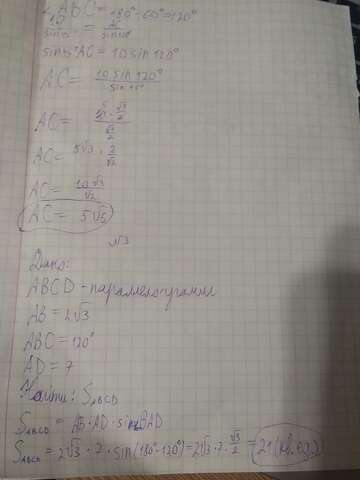 ∠ABC = 180° - 60° = 120°
10/sin45° = AC/sin120°
sin45° AC = 10 sin 120°
AC = 10 sin 120° / sin 45°
AC = 10 · √3/2 / √2/2
AC = 5√3 · 2/√2
AC = 10√3/√2
AC = 5√6
№3
Дано:
ABCD - параллелограмм
AB = 2√3
ABC = 120°
AD = 7
Найти: S ABCD
S ABCD = AB · AD · sin BAD
S ABCD = 2√3 · 7 · sin(180° - 120°) = 2√3 · 7 · √3/2 = 21 (кв. ед.)